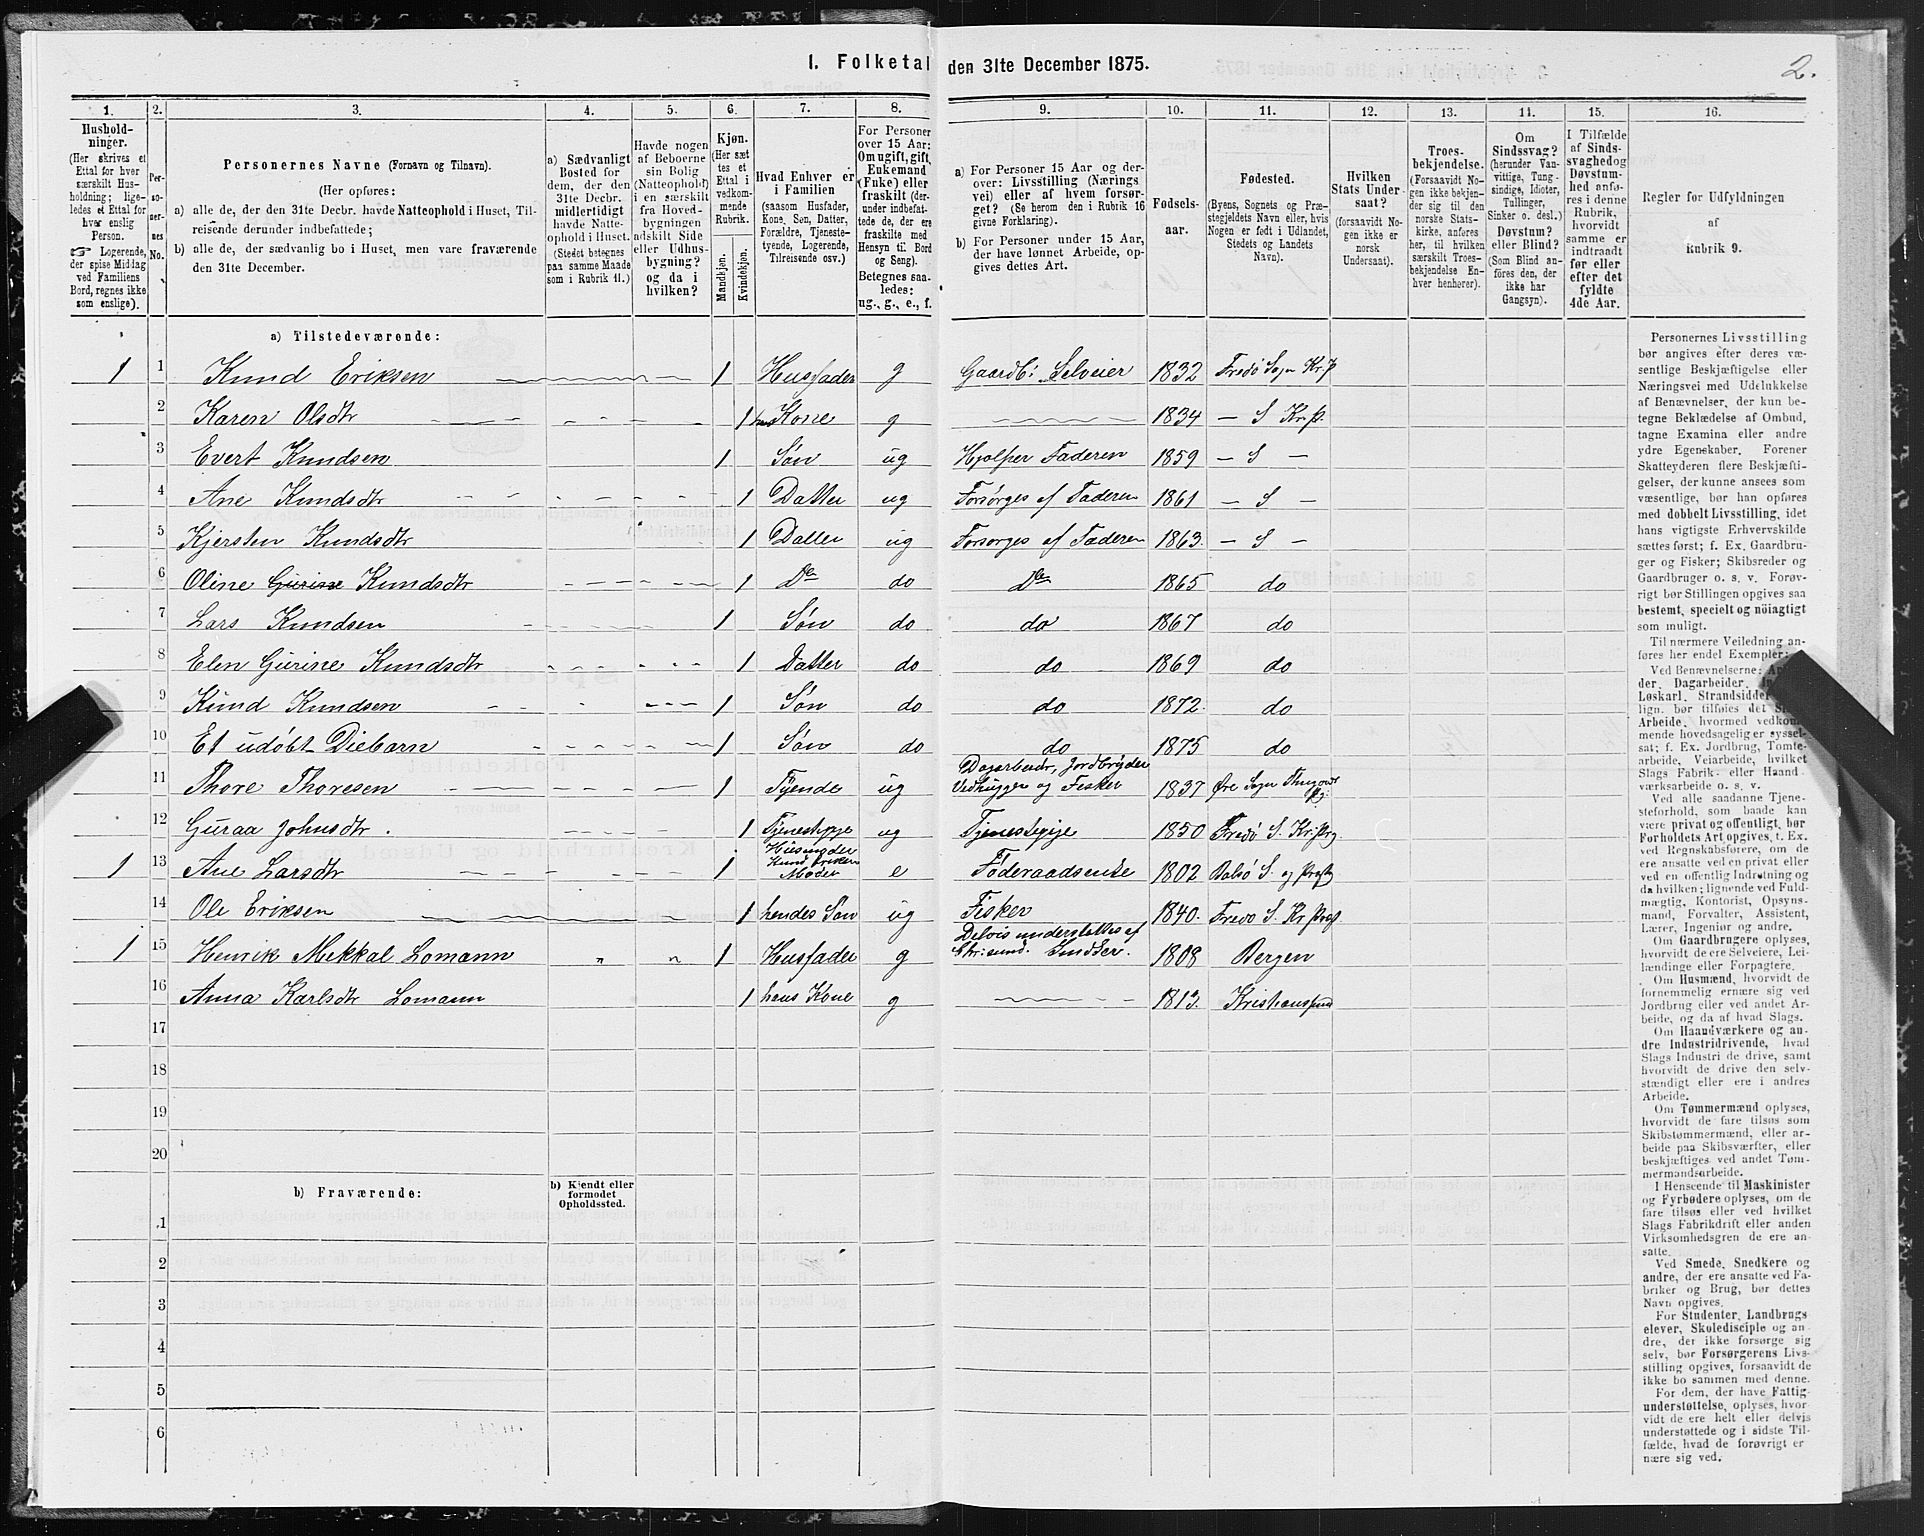 1. Folketal den 31te December 1875.
2.
1. 2. 3. 4. 5. 6. 7. 8. 9. 10. 11. 12. 13. 14. 15. 16.
Hushold-
ninger.
(Her skrives et
Ettal for hver
særskilt Hus-
holdning; lige-
ledes et Ettal for
hver enslig
Person.
☞ Logerende,
der spise Middag
ved Familiens
Bord, regnes ikke
som enslige).
Per-
so-
ner-
nes
No.
Personernes Navne (Fornavn og Tilnavn).
(Her opføres:
a) alle de, der den 31te Decbr. havde Natteophold i Huset, Til-
reisende derunder indbefattede;
b) alle de, der sædvanlig bo i Huset, men vare fraværende
den 31te December.
a) Sædvanligt
Bosted for
dem, der den
31te Decbr.
midlertidigt
havde Natte-
ophold i Huset.
(Stedet betegnes
paa samme Maade
som i Rubrik 11.)
Havde nogen
af Beboerne
sin Bolig
(Natteophold)
i en særskilt
fra Hoved-
bygningen
adskilt Side
eller Udhus-
bygning?
og da i
hvilken?
Kjøn.
(Her sæt
tes et
Ettal i
vedkom-
mende
Rubrik.
Mandkjøn.
Kvindekjøn.
Hvad Enhver er
i Familien
(saasom Husfader,
Kone, Søn, Datter,
Forældre, Tjeneste-
tyende, Logerende,
Tilreisende osv.)
For Personer
over 15 Aar:
Om ugift, gift,
Enkemand
(Enke) eller
fraskilt (der-
under indbefat-
tede de, der ere
fraskilte med
Hensyn til Bord
og Seng).
Betegnes saa-
ledes:
ug., g., e., f.
a) For Personer 15 Aar og der-
over: Livsstilling (Nærings
vei) eller af hvem forsør-
get? (Se herom den i Rubrik 16
givne Forklaring).
b) For Personer under 15 Aar,
der have lønnet Arbeide, op-
gives dettes Art.
Fødsels-
aar.
Fødested.
(Byens, Sognets og Præ-
stegjeldets Navn eller, hvis
Nogen er født i Udlandet,
Stedets og Landets
Navn).
Hvilken
Stats Under-
saat?
(forsaavidt No-
gen ikke er
norsk
Undersaat).
Troes-
bekjendelse.
(Forsaavidt No-
gen ikke bekjen-
der sig til den
norske Stats-
kirke, anføres
her, til hvilken
særskilt Troes-
bekjendelse En-
hver henhører).
Om
Sindssvag?
(herunder Van-
vittige, Tung-
sindige, Idioter,
Tullinger,
Sinker o. desl.)
Døvstum?
eller Blind?
(Som Blind an-
føres den, der
ikke har
Gangsyn).
I Tilfælde
af Sinds-
svaghedog
Døvstum-
hed anfø-
res i denne
Rubrik,
hvorvidt
samme er
indtraadt
før eller
efter det
fyldte
4de Aar.
Regler for Udfyldningen
af
Rubrik 9.
a) Tilstedeværende:
1 1 Knud Eriksen 1 Husfader g Gaardb: Selveier 1832 Fredø Sogn Kr. P
2 Karen Olsdtr 1 hans Kone g 1834 — S Kr. P.
3 Evert Knudsen 1 Søn ug Hjælper Faderen 1859 — S —
4 Ane Knudsdtr 1 Datter ug Forsørges af Faderen 1861 — S —
5 Kjersten Knudsdtr 1 Datter ug Forsørges af Faderen 1863. — S —
6 Oline Gurine Knudsdtr 1 Do do Do 1865 do
7 Lars Knudsen 1 Søn do do 1867 do
8 Elen Gurine Knudsdtr 1 Datter do do 1869 do
9 Knud Knudsen 1 Søn do do 1872. do
10 Et udøbt Diebarn 1 Søn do do 1875 do
11 Thore Thoresen 1 Tyende ug Dagarbeidr, Jordbryder
Vedhugger og Fisker 1837 Øre Sogn
12 Guraa Johnsdtr. 1 ug Tjenestepige 1850 Fredø S. Kr. Prg
1 13 Ane Larsdtr 1 Husmoder
Knud Eriksens
Moder e Føderaadsenke 1802
14 Ole Eriksen 1 hendes Søn ug Fisker 1840. Fredø S. Kr. Præg.
1 15 Henrik Mekkal Lomann " " 1 Husfader g Delvis understøttes af
Chr:sund. 1808 Bergen
16 Anna Karlsdtr Lomann 1 hans Kone g 1813. Kristianssund
17
18
19
20
b) Fraværende:
b) Kjendt eller
formodet
Opholdssted.
1
2
3
4
5
6
Personernes Livsstilling
bør angives efter deres væ-
sentlige Beskjæftigelse eller
Næringsvei med Udelukkelse
af Benævnelser, der kun be-
tegne Beklædelse af Ombud,
tagne Examina eller andre
ydre Egenskaber. Forener
Skatteyderen flere Beskjæfti-
gelser, der kunne ansees som
væsentlige, bør han opføres
med dobbelt Livsstilling, idet
hans vigtigste Erhvervskilde
sættes først; f. Ex. Gaardbru-
ger og Fisker; Skibsreder og
Gaardbruger o. s. v. Forøv-
rigt bør Stillingen opgives saa
bestemt, specielt og nöiagtigt
som muligt.
Til nærmere Veiledning an-
føres her endel Exempler:
Ved Benævnelserne:
der, Dagarbeider,
Løskarl, Strandsidder
lign. bør tilføies det
Arbeide, hvormed vedkom-
mende hovedsagelig er syssel-
sat; f. Ex. Jordbrug, Tomte-
arbeide, Veiarbeide, hvilket
Slags Fabrik- eller Haand-
værksarbeide o. s. v.
Ved alle saadanne Tjene-
steforhold, som baade kan
være privat og offentligt, bør
Forholdets Art opgives, t. Ex.
ved Regnskabsførere, om de
ere ansatte ved en privat eller
ved en offentlig Indretning og
da hvilken; lignende ved Fuld-
mægtig, Kontorist, Opsyns-
mand, Forvalter, Assistent,
Lærer, Ingeniør og andre.
Om Gaardbrugere oplyses,
hvorvidt de ere Selveiere, Lei-
lændinge eller Forpagtere.
Om Husmænd, hvorvidt de
fornemmelig ernære sig ved
Jordbrug eller ved andet Ar-
beide, og da af hvad Slags.
Om Haandværkere og an-
dre Industridrivende, hvad
Slags Industri de drive, samt
hvorvidt de drive den selv-
stændigt eller ere i andres
Arbeide.
Om Tømmermænd oplyses,
hvorvidt de fare tilsøs som
Skibstømmermænd, eller ar-
beide paa Skibsværfter, eller
beskjæftiges ved andet Tøm-
mermandsarbeide.
I Henseende til Maskinister
og Fyrbødere oplyses, om de
fare tilsøs eller ved hvilket
Slags Fabrikdrift eller anden
Virksomhedsgren de ere an-
satte.
Ved Smede, Snedkere og
andre, der ere ansatte ved Fa-
briker og Brug, bør dettes
Navn opgives.
For Studenter, Landbrugs
elever, Skoledisciple og an-
dre, der ikke forsørge sig
selv, bør Forsørgerens Livs-
stilling opgives, forsaavidt de
ikke bo sammen med denne.
For dem, der have Fattig-
understøttelse, oplyses, hvor-
vidt de ere helt eller delvis
understøttede og i sidste Til-
fælde, hvad de forøvrigt er
nære sig ved.